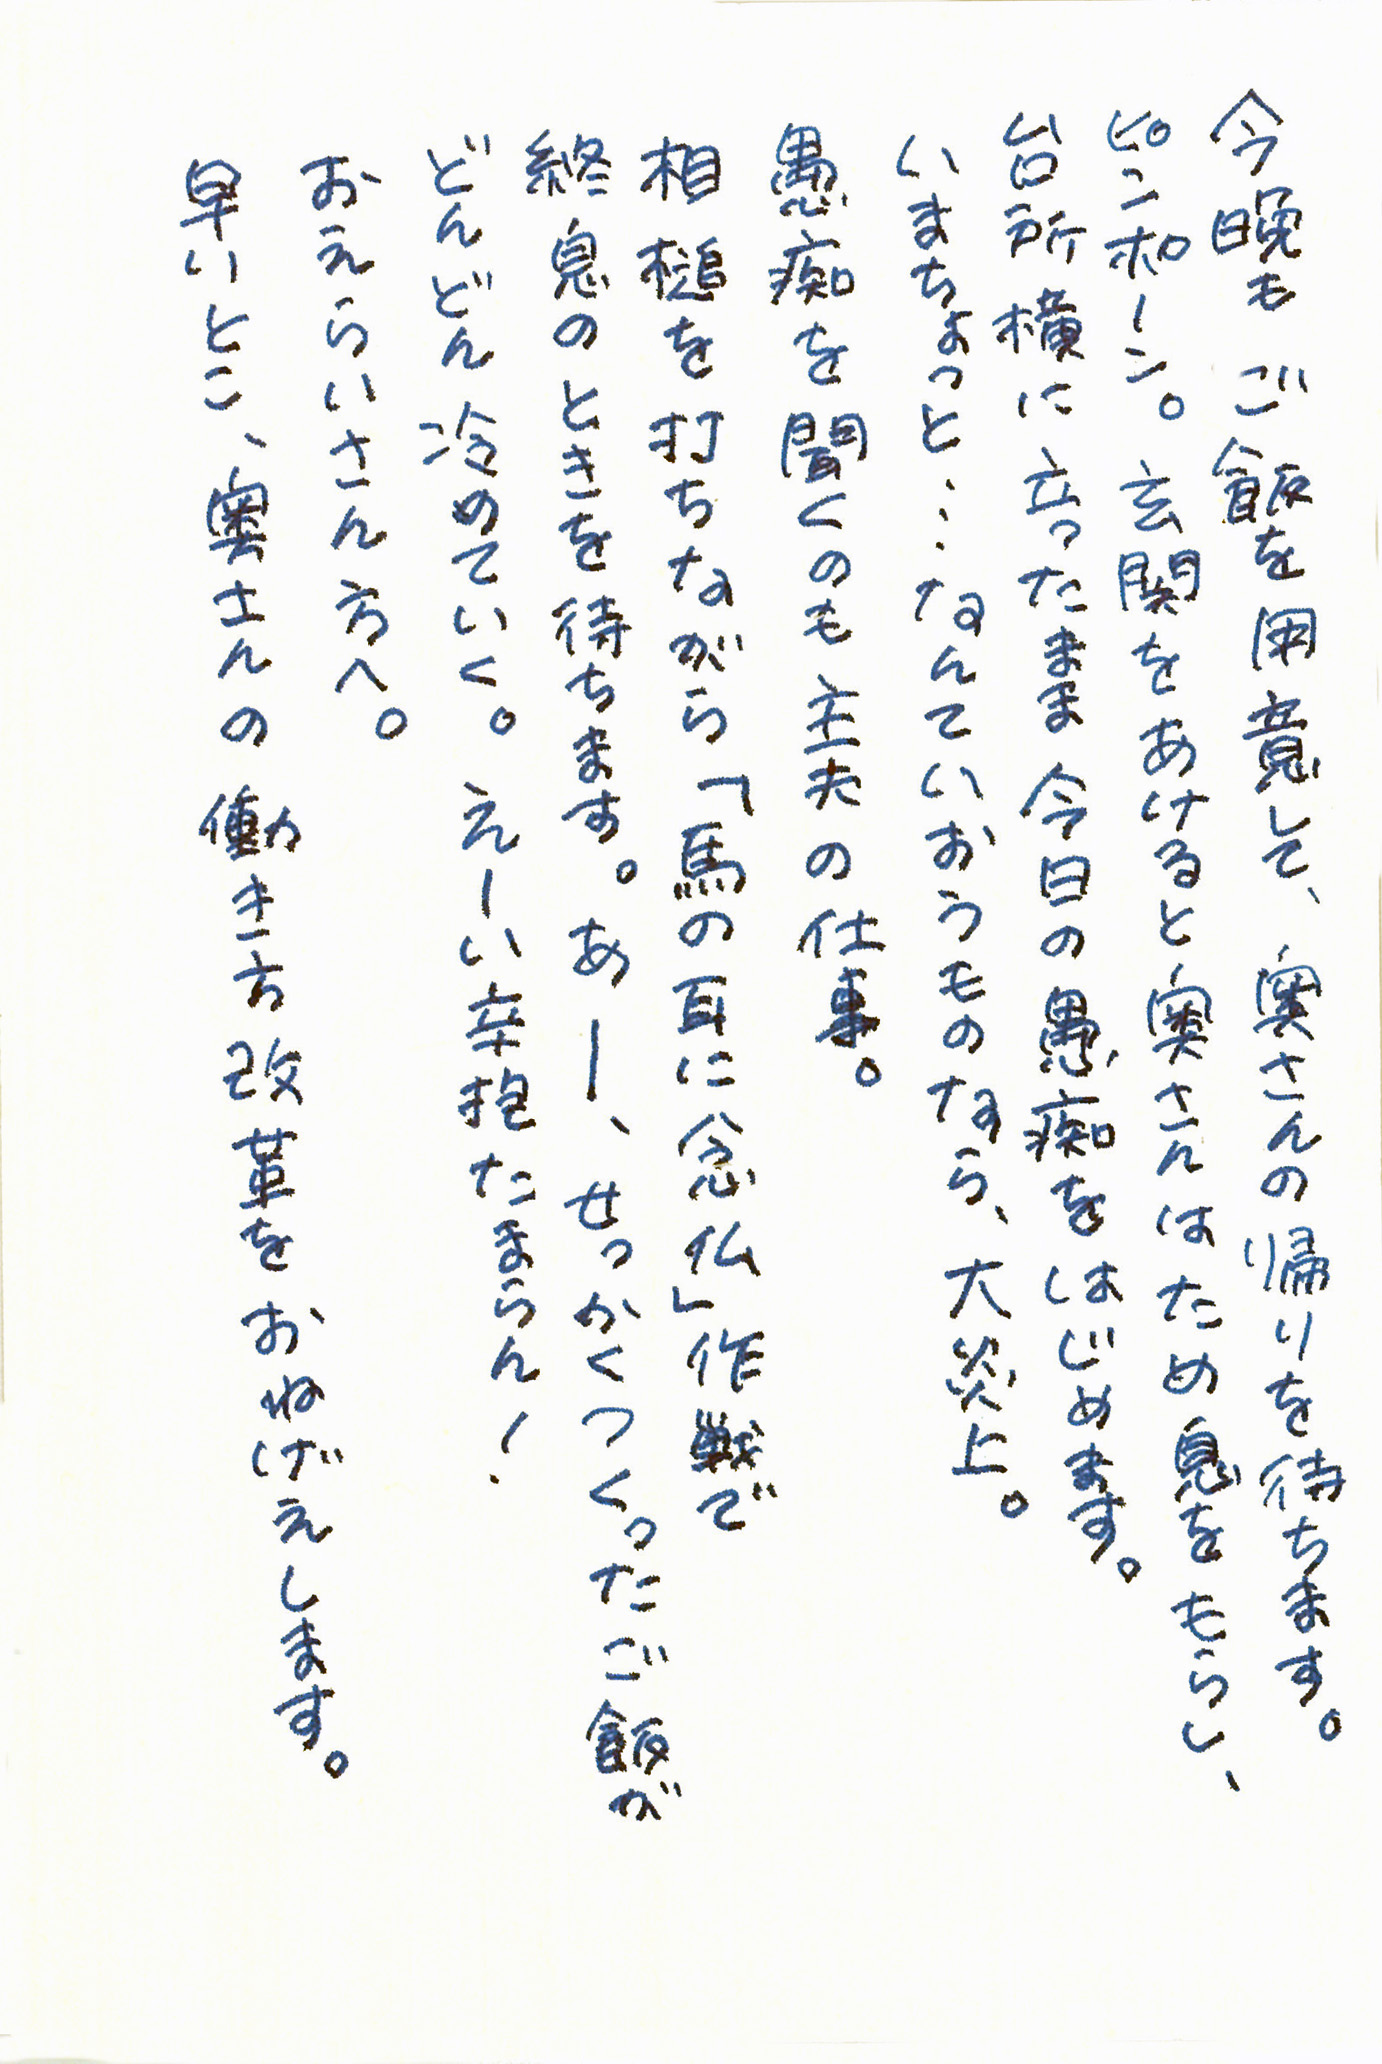 今晩もご飯を用意して、奥さんの帰りを待ちます。
ピンポーン。玄関をあけると奥さんはため息をもらし、
台所横に立ったまま今日の愚痴をはじめます。
いまちょっと…なんていおうものなら、大炎上。
愚痴を聞くのも主夫の仕事。
相槌を打ちながら「馬の耳に念仏」作戦で
終息のときを待ちます。あー、せっかくつくったご飯が
どんどん冷めていく。えーい辛抱たまらん！
おえらいさん方へ。
早いとこ、奥さんの働き方改革をおねげえします。